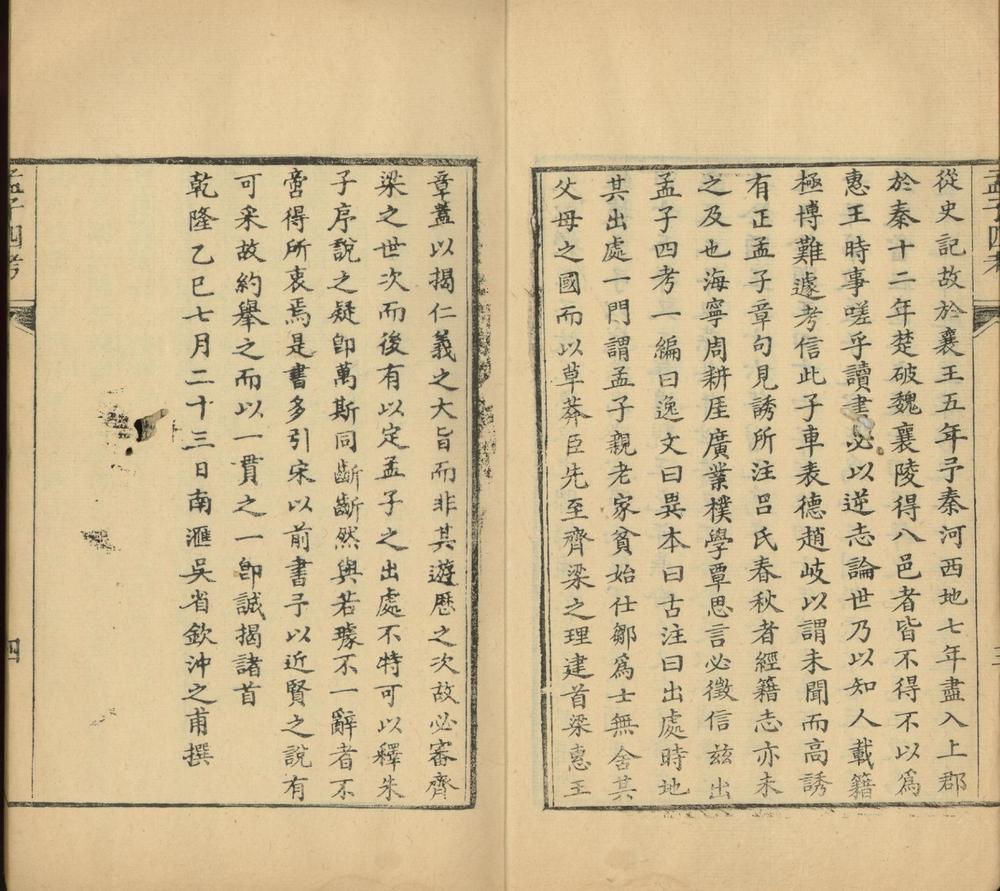 孟子四考
從史記故於襄王五年予秦河西地七年盡入上郡
於秦十二年楚破魏襄陵得八邑者皆不得不以為
惠王時事嗟乎讀書必以逆志論世乃以知人載籍
極博難遽考信此子車表德趙岐以謂未聞而高誘
有正孟子章句見誘所注呂氏春秋者經籍志亦未
之及也海寧周耕厓廣業樸學覃思言必徵信茲出
孟子四考一編曰逸文曰異本曰古注曰出處時地
其出處一門謂孟子親老家貧始仕鄒為士無舍其
父母之國而以草莽臣先至齊梁之理建首梁惠王
章蓋以揭仁義之大旨而非其遊歷之次故必審齊
梁之世次而後有以定孟子之出處不特可以釋朱
子序說之疑卽萬斯同齗齗然與若璩不一辭者不
啻得所衷焉是書多引宋以前書予以近賢之說有
可采故約舉之而以一貫之一卽誠揭諸首
乾隆乙巳七月二十三日南滙吳省欽沖之甫撰
孟子四考
四